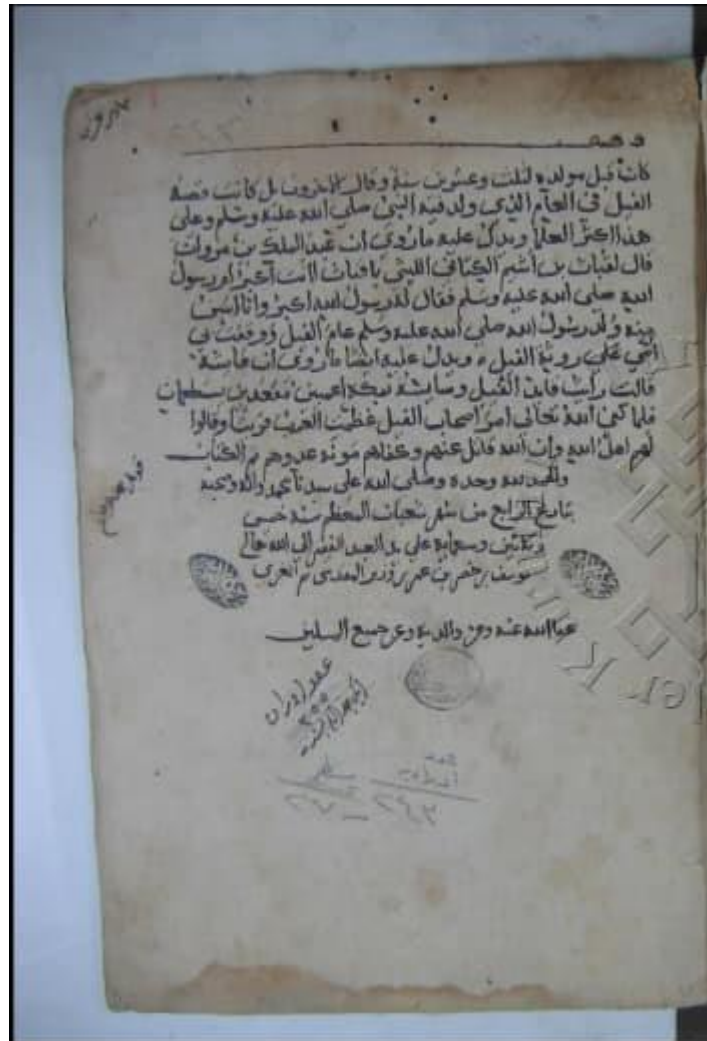 كان قبل مولده لثلث وعشرين سنة وقال الاخرون بل كانت قصة
الفيل في العام الذي ولد فيه النبي صلى الله عليه وسلم وعلى
هذا اكثر العلما ويدل عليه ما روي ان عبد الملك بن مروان
قال لقباث بن اشيم الكناني الليثي يا قباث انت اكبر ام رسول
الله صلى الله عليه وسلم فقال له رسول الله اكبر وانا اسن
منه ولد رسول الله صلى الله عليه وسلم عام الفيل ووقفت بي
امي على روية الفيل ويدل عليه ايضا ما روي ان عايشة
قالت رايت قايد الفيل وسايسه بمكة اعميين مقعدين يستطعمان
فلما كفى الله تعالى امر اصحاب الفيل عظمت العرب قريشا وقالوا
لهم اهل الله وان الله قاتل عنهم وكفاهم مونة عدوهم تم الكتاب
والحمد لله وحده وصلى الله على سيدنا محمد واله وصحبه
بتاريخ الرابع من شهر شعبان المعظم سنة خمس
وسبعماية على يد العبد الفقير الى الله تعالى
يوسف بن خضر بن عمر المقدسي ثم
عفا الله عنه وعن والديه وعن جميع المسلمين
عدد اوراق
٢٠٠
٢٤٣